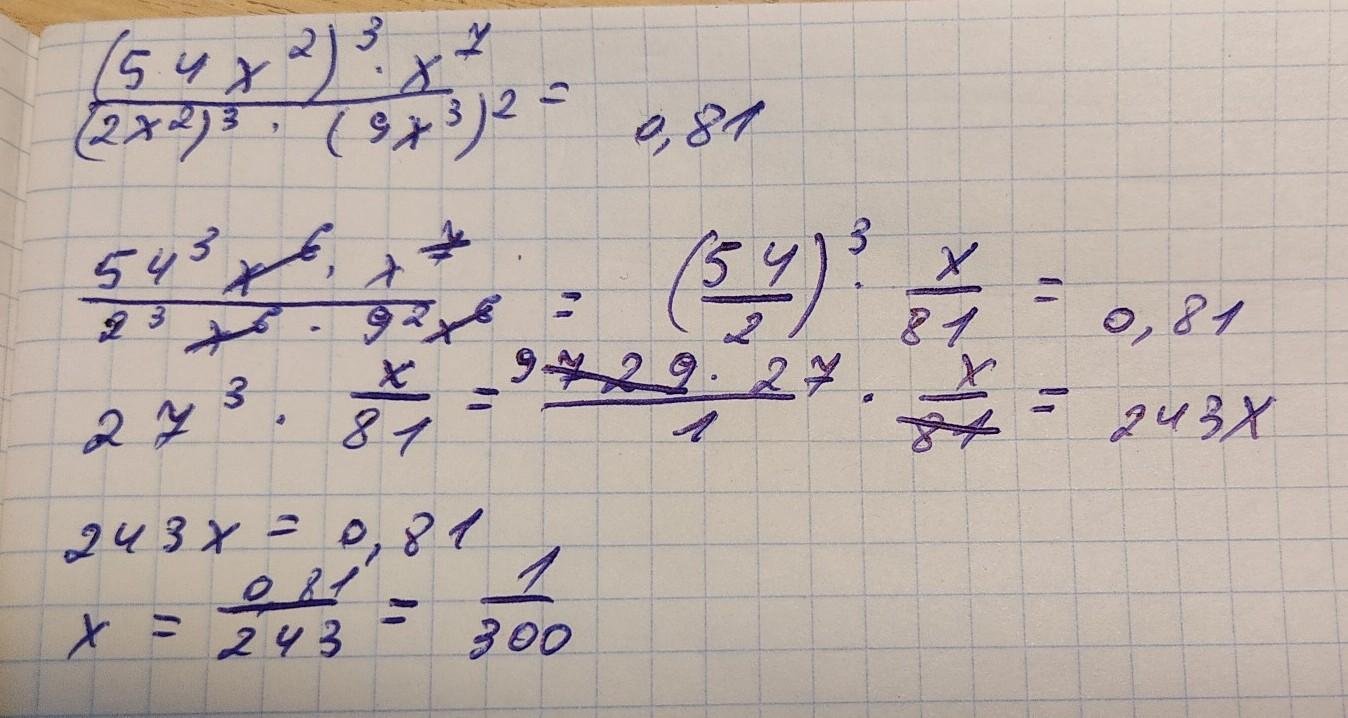 (54x²)³ · x⁷ / (2x²)³ · (9x³)² = 0,81
54³ x⁶ · x⁷ / 2³ x⁶ · 9² x⁶ = (54/2)³ · x/81 = 0,81
27³ · x/81 = 9 729 · 27 / 1 · x/81 = 243x
243x = 0,81
x = 0,81/243 = 1/300